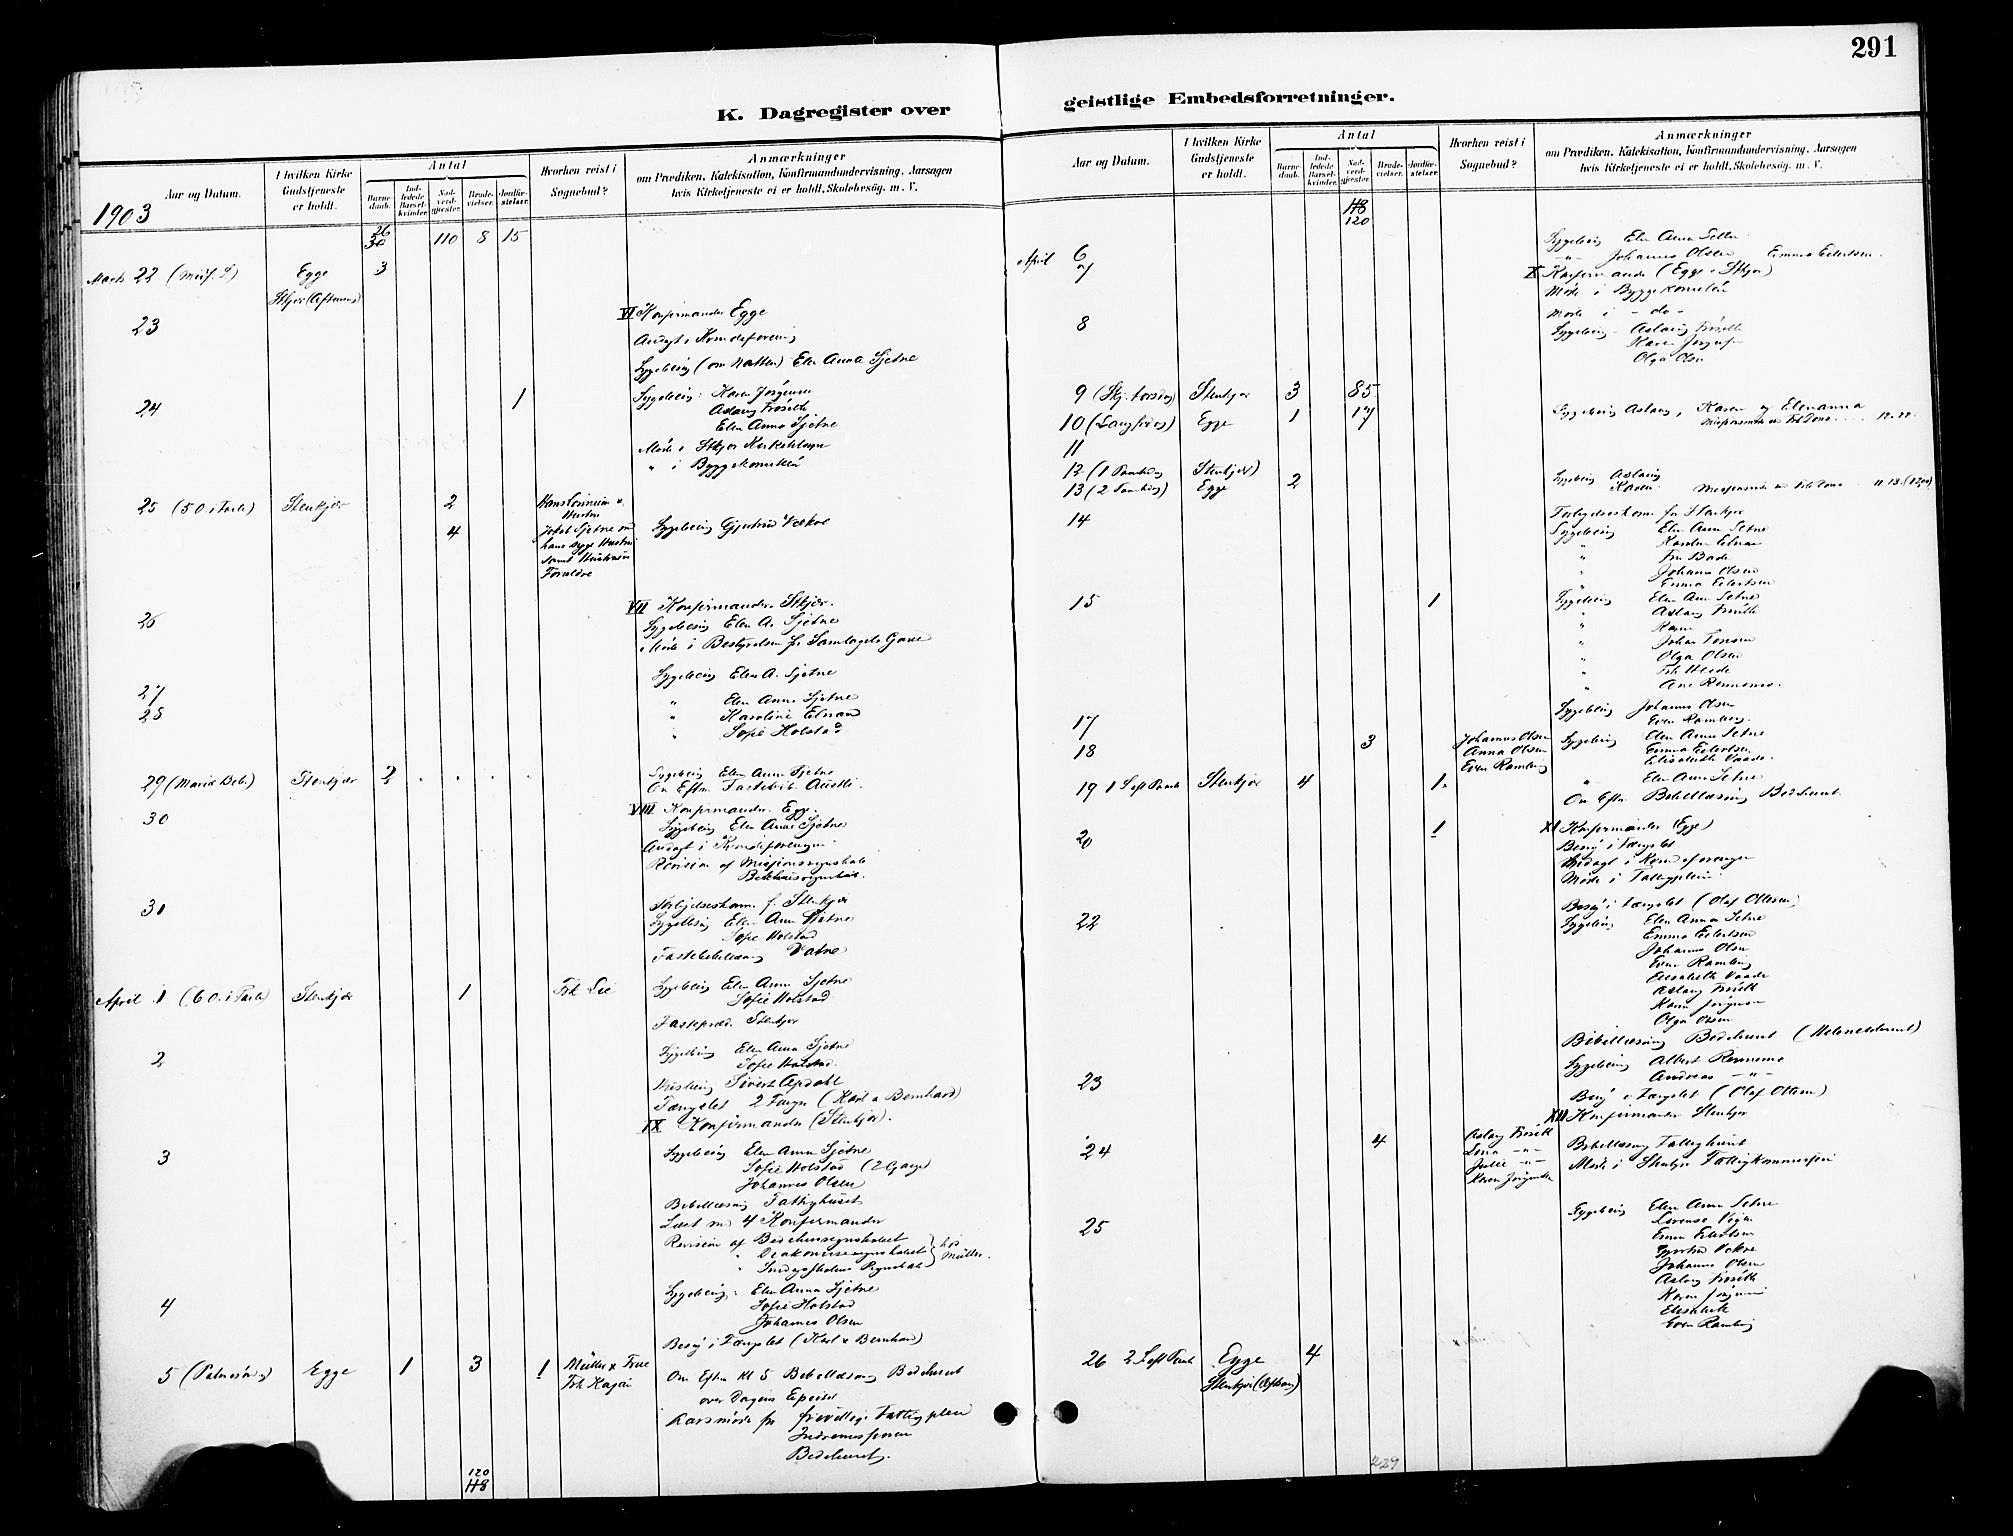 291
K. Dagregister over
Aar og Datum.
I hvilken Kirke Gudstjeneste er holdt.
Antal
Barne-daab.
Ind-ledede Barsel-kvinder.
Nad-verd-gjæster.
Brude-vielser.
Jordfæ-stelser.
Hvorhen reist i Sognebud?
Anmærkninger
om Prædiken, Katekisation, Konfirmandundervisning, Aarsagen
hvis Kirketjeneste ei er holdt, Skolebesøg. m. V.
1903
26
30 110 8 15
Marts 22 (Midf. S.) Egge 3
Stkjær (Aftensg)
23 VI Konfirmander Egge
Andagt i Kvindeforening
Sygebesøg (om Natten) Elen Anna Sjetne
24 1 Sygebesøg: Karen Jørgensen
Aslaug Frøseth
Elen Anna Sjetne
Møde i Stkjær Kirketilsyn
" i Byggekomiteen
25 (5 O. i Faste) Stenkjær 2 Hans
Hustru
4 Jakob Sjetne og
hans syge Hustru
samt Hustruens
Forældre
Sygebesøg Gjertrud Vekre
26 VII Konfirmander Stkjær.
Sygebesøg Elen A. Sjetne
Møde i Bestyrelsen for Samlagets Gave
27 Sygebesøg Elen A. Sjetne
28 " Elen Anna Sjetne
" Karoline Elnan
" Sofie Holstad
29 (Mariæ Beb.) Stenkjær 2 . . . .
Sygebesøg Elen Anna Sjetne
On Eftm. Fastebib.
30 VIII Konfirmander. Egge.
Sygebesøg Elen Anna Sjetne
Andagt i Kvindeforeningen
Revision af Missionsregnskab
Bedehusregnskab.
31 Forligelseskom. f. Stenkjær
Sygebesøg Elen Anna Sjetne
Sofie Holstad
Fastebibellæsning Vatne
April 1 (6 O. i Faste) Stenkjær 1 Frk Lie
Sygebesøg Elen Anna Sjetne
Sofie Holstad
Fastepræd. Stenkjær
2 Sygebesøg Elen Anna Sjetne
Sofie Holstad
Husbesøg Sivert Opdahl
Fængslet 2 Fanger (Karl & Bernhard)
IX Konfirmander (Stenkjær).
3 Sygebesøg Elen Anna Sjetne
Sofie Holstad (2 Gange)
Johannes Olsen
Bibellæsning Fattighuset
Læst med 4 Konfirmander
Revision af Bedehusregnskabet
" Diakonisseregnskabet } hos Müller.
" Søndagsskolens Regnskab
4 Sygebesøg: Elen Anna Sjetne
Sofie Holstad
Johannes Olsen
Besøg i Fængslet (Karl & Bernhard)
5 (Palmesøndag) Egge 1 3 1 Müller & Frue
Frk Kajsa
Om Eftm Kl 5 Bibellæsning Bedehuset
over Dagens Epistel
Aarsmøde for frivillige Fattigpleie
Indremissionen
Bedehuset.
120
118
geistlige Embedsforretninger.
Aar og Datum.
I hvilken Kirke Gudstjeneste er holdt.
Antal
Barne-daab.
Ind-ledede Barsel-kvinder.
Nad-verd-gjæster.
Brude-vielser.
Jordfæ-stelser.
Hvorhen reist i Sognebud?
Anmærkninger
om Prædiken, Katekisation, Konfirmandundervisning, Aarsagen
hvis Kirketjeneste ei er holdt, Skolebesøg. m. V.
118
120
April 6 Sygebesøg Elen Anna Setne
-"- Johannes Olsen Emma Eilertsen.
7 X Konfirmander (Egge & Stkjær)
Møde i Byggekomiteen
8 Møde i - do -
Sygebesøg - Aslaug Frøseth
Karen Jørgensen
Olga Olsen
9 (Skj. torsdag) Stenkjær 3 85
10 (Langfredag) Egge 1 17 Sygebesøg Aslaug, Karen og Elen Anna
11
12 (1 Paaskedag Stenkjær)
13 (2 Paaskedag) Egge 2 Sygebesøg Aslaug
Karen
14 Forligelseskom. for Stenkjær
Sygebesøg Elen Anna Setne
" Karoline Elnan
" Fru Bade
" Johannes Olsen
" Emma Eilertsen
15 1 Sygebesøg Elen Anna Setne
" Aslaug Frøseth
" Karen
" Johan Tonsen
" Olga Olsen
" Frk Heide
" Ane Rennemo.
17 Sygebesøg Johannes Olsen
Even Ramberg.
18 3 Johannes Olsen
Anna Olsen
Even Ramberg
Sygebesøg Elen Anna Setne
Emma Eilertsen
Elisabeth Vaade.
19 1 S eft Paaske Stenkjær 4 1. " Elen Anna Setne
On Eftm. Bibellæsning Bedehuset
20 1 XI Konfirmander (Egge)
Besøg i Fængslet
Andagt i Kvindeforeningen
Møde i Fattigpleien
22 Besøg i Fængslet (Olaf Ottesen)
Sygebesøg Elen Anna Setne
Emma Eilertsen
Johannes Olsen
Even Ramberg
Elisabeth Vaade
Aslaug Frøseth
Karen Jørgensen
Olga Olsen
Bibellæsning Bedehuset
23 Sygebesøg Albert Rennemo
Andreas -"-
Besøg i Fængslet (Olaf Ottesen)
XII Konfirmander Stenkjær
24 4 Aslaug Frøseth
Lina -"-
Julie -"-
Karen Jørgensen
Bibellæsning Fattighuset
Møde i Stenkjær Fattigkommission
25 Sygebesøg Elen Anna Setne
Lorense
Emma Eilertsen
Gjertrud Vekre
Johannes Olsen
Aslaug Frøseth
Karen Jørgensen
Elisabeth
Even Ramberg
26 2 S eft Paaske Egge 4
Stenkjær (Aftensang)
227